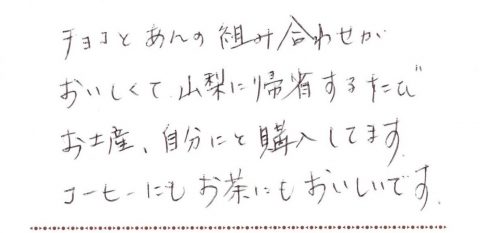 チョコとあんの組み合わせが
おいしくて、山梨に帰省するたび
お土産、自分にと購入してます。
コーヒーにもお茶にもおいしいです。